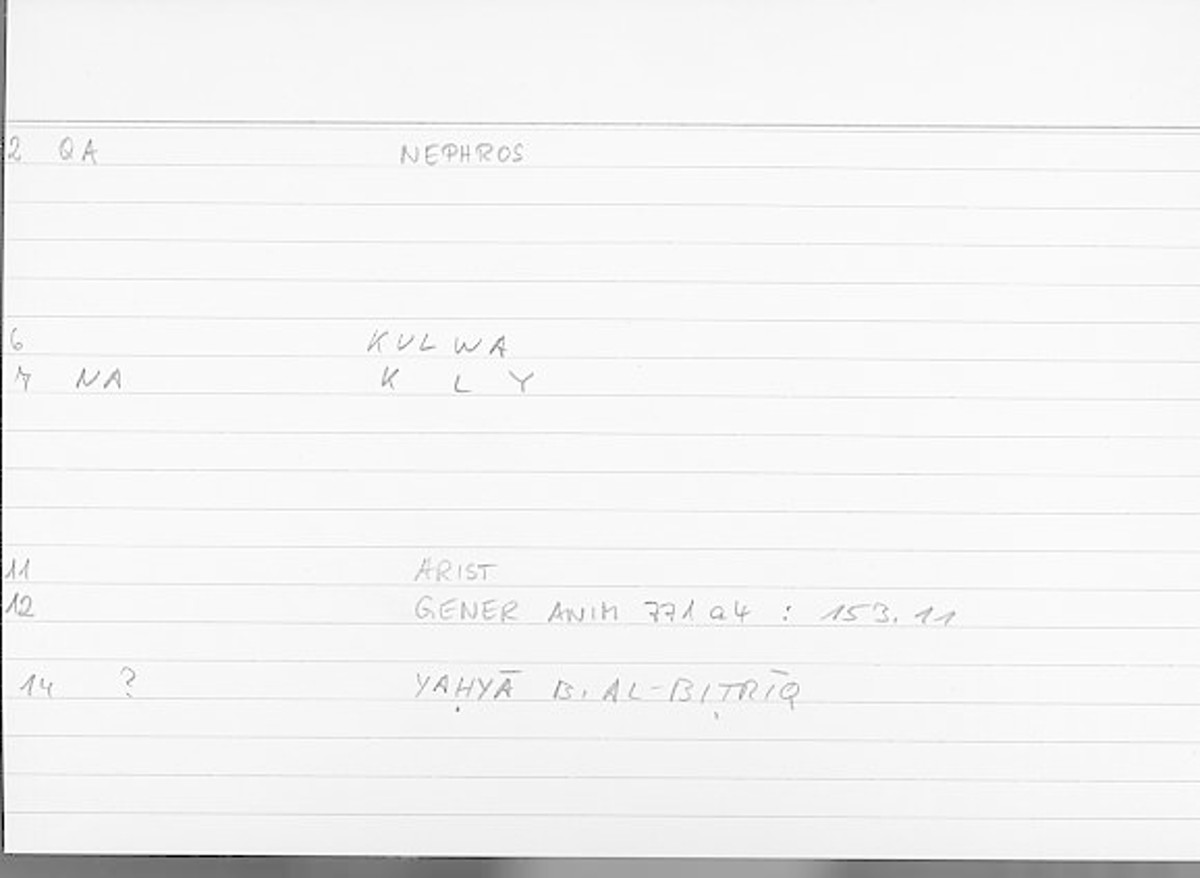 2 QA NEPHROS
6 KULWA
7 NA K L Y
11 ARIST
12 GENER ANIM 771a4 : 153.11
14 ? YAḤYĀ B. AL-BIṬRĪQ